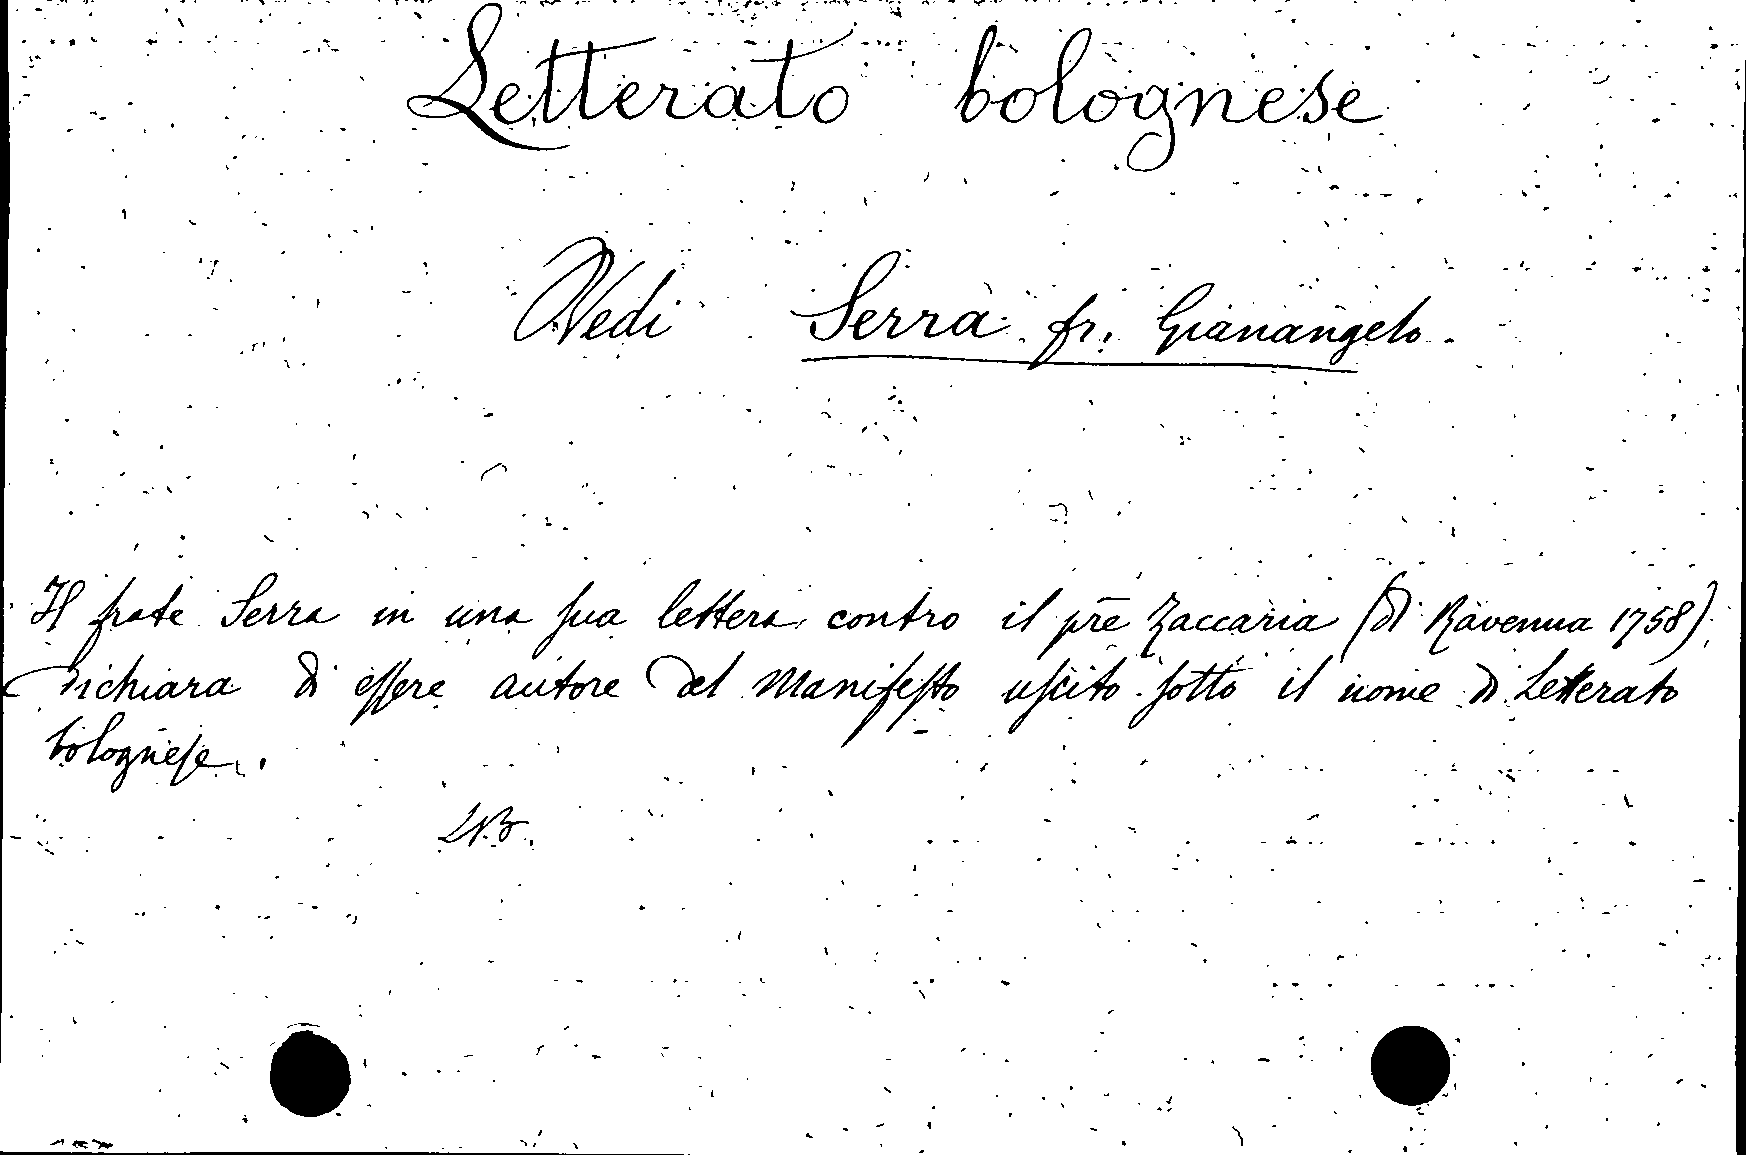 Letterato bolognese
Vedi Serra fr. Gianangelo.
Il frate Serra in una sua lettera contro il pre Zaccaria (di Ravenna 1758)
dichiara di essere autore del Manifesto uscito sotto il nome di Letterato
bolognese.